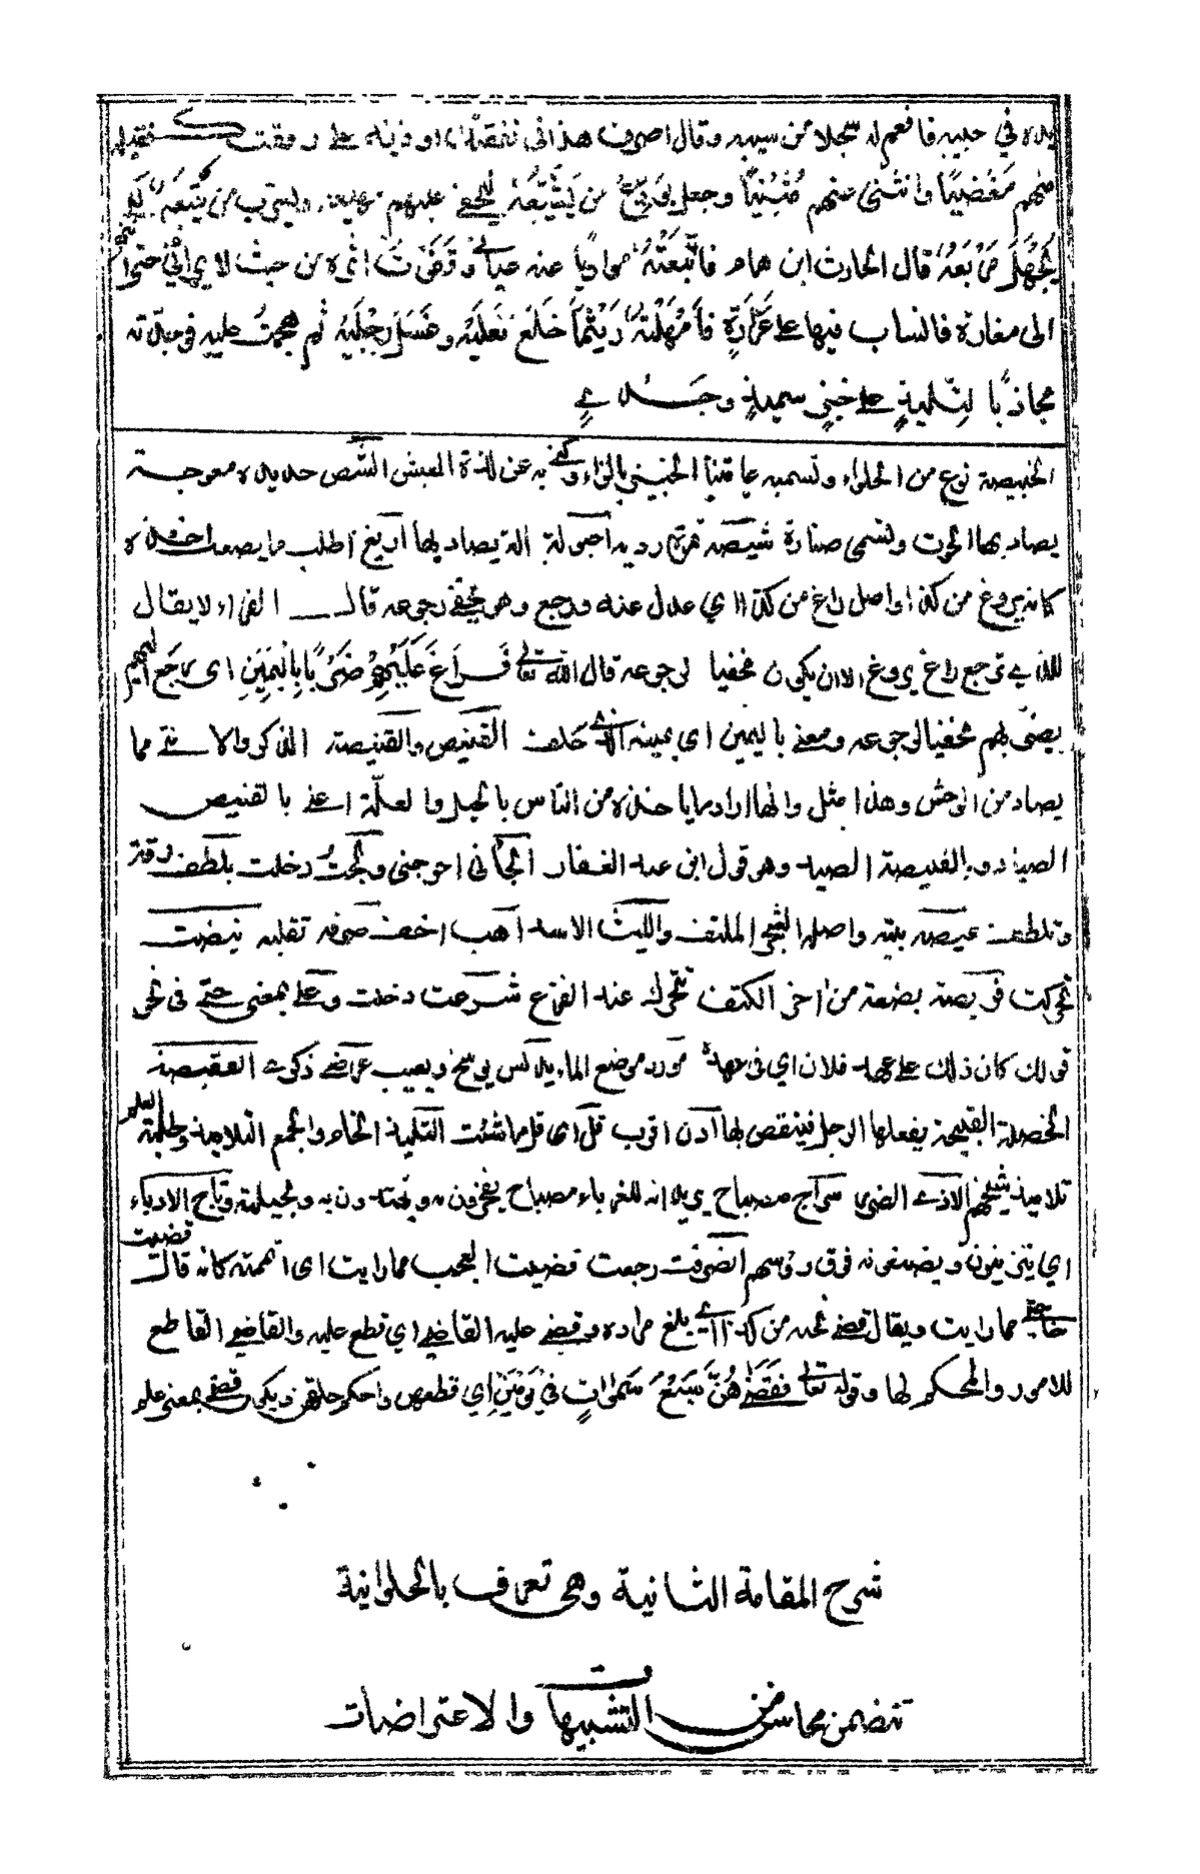 يده في جيبه فافعم له سجلا من سيبه وقال اصرف هذا في نفقتك او فرقه على رفقتك فقبله
منهم مغضيًا وانثنى عنهم مُثنيًا وجعل يودع من يُشيّعُه ليخفى عليهم مهيعه ويسرب من يتبعُه لكي
يُجهَل مَربعُهُ قال الحارث ابن همام فاتّبعتُهُ مواريًا عنه عياني وقفوت اثره من حيث لا يراني حتى انتهى
الى مغارة فانساب فيها على غرارةٍ فامهلتُهُ ريثما خلع نعليه وغسل رجليه ثم هجمتُ عليه فوجدته
محاذيًا لتلميذٍ على خبزٍ سميذٍ وجَدْيٍ
الخبيصة نوع من الحلواء وتسميه الخبيز بالزاء وكنى به عن لذة العيش الشص حديدة معوجة
يصاد بها الحوت وتسمى صنارة شيصه احبولة الة يصاد بها اريغ اطلب
كانه يروغ من كذا واصل راغ من كذا اي عدل عنه ورجع وهو يخفي رجوعه قال الفراء لا يقال
للذي رجع راغ يروغ الا ان يكون مخفيا لرجوعه قال الله تعالى فَراغَ عَلَيْهِمْ ضَرْبًا بِاليَمِينِ اى رجع اليهم
يضربهم مخفيا لرجوعه ومعنى باليمين اي بيمينه الذي حلف القنيص والقنيصة الذكر والانثى مما
يصاد من الوحش وهذا مثل وانما اراد ما ياخذه من الناس بالحيل والعلة اعني بالقنيص
الصياد وبالقنيصة الصيد وهو قول ابن عبد الغفار الجاني احوجني ولجتُ دخلت بلطف رقة
وتلطف عيصه بيته واصله الشجر الملتف والليث الاسد اهب اخف صرفه تقلبه نبضت
تحركت فريصة بضعة من اخر الكتف تتحرك عند الفزع شرعت دخلت وعلى بمعنى حتى في نحو
قولك كان ذلك على عهد فلان اي في عهده مورد موضع الماء يدنس يوسخ ويعيب عرضي ذكري النقيصة
الخصلة القبيحة يفعلها الرجل فينقص بها ادن اقرب قل اى قل ما شئت التلميذ الخادم والجمع التلاميذ وطلبة العلم
تلاميذ شيخهم الاذي الضرى سراج مصباح يريد انه للغرباء مصباح يفخرون به ويهتدون به وتاج الادباء
اي يتزينون ويضعونه فوق رءوسهم انصرفت رجعت قضيت العجب مما رايت اى اتممته كانه قال قضيت
حاجتي مما رايت ويقال قضى نحبه من كذا اي بلغ مراده وقضى عليه القاضي اي قطع عليه والقاضي القاطع
للامور والمحكم لها وقوله تعالى فَقَضَاهُنَّ سَبْعَ سَمَوَاتٍ فِي يَوْمَيْنِ اي قطعهن واحكم خلقهن ويكون قضى بمعنى علم
شرح المقامة الثانية وهى تعرف بالحلوانية
تتضمن محاسن من التشبيهات والاعتراضات